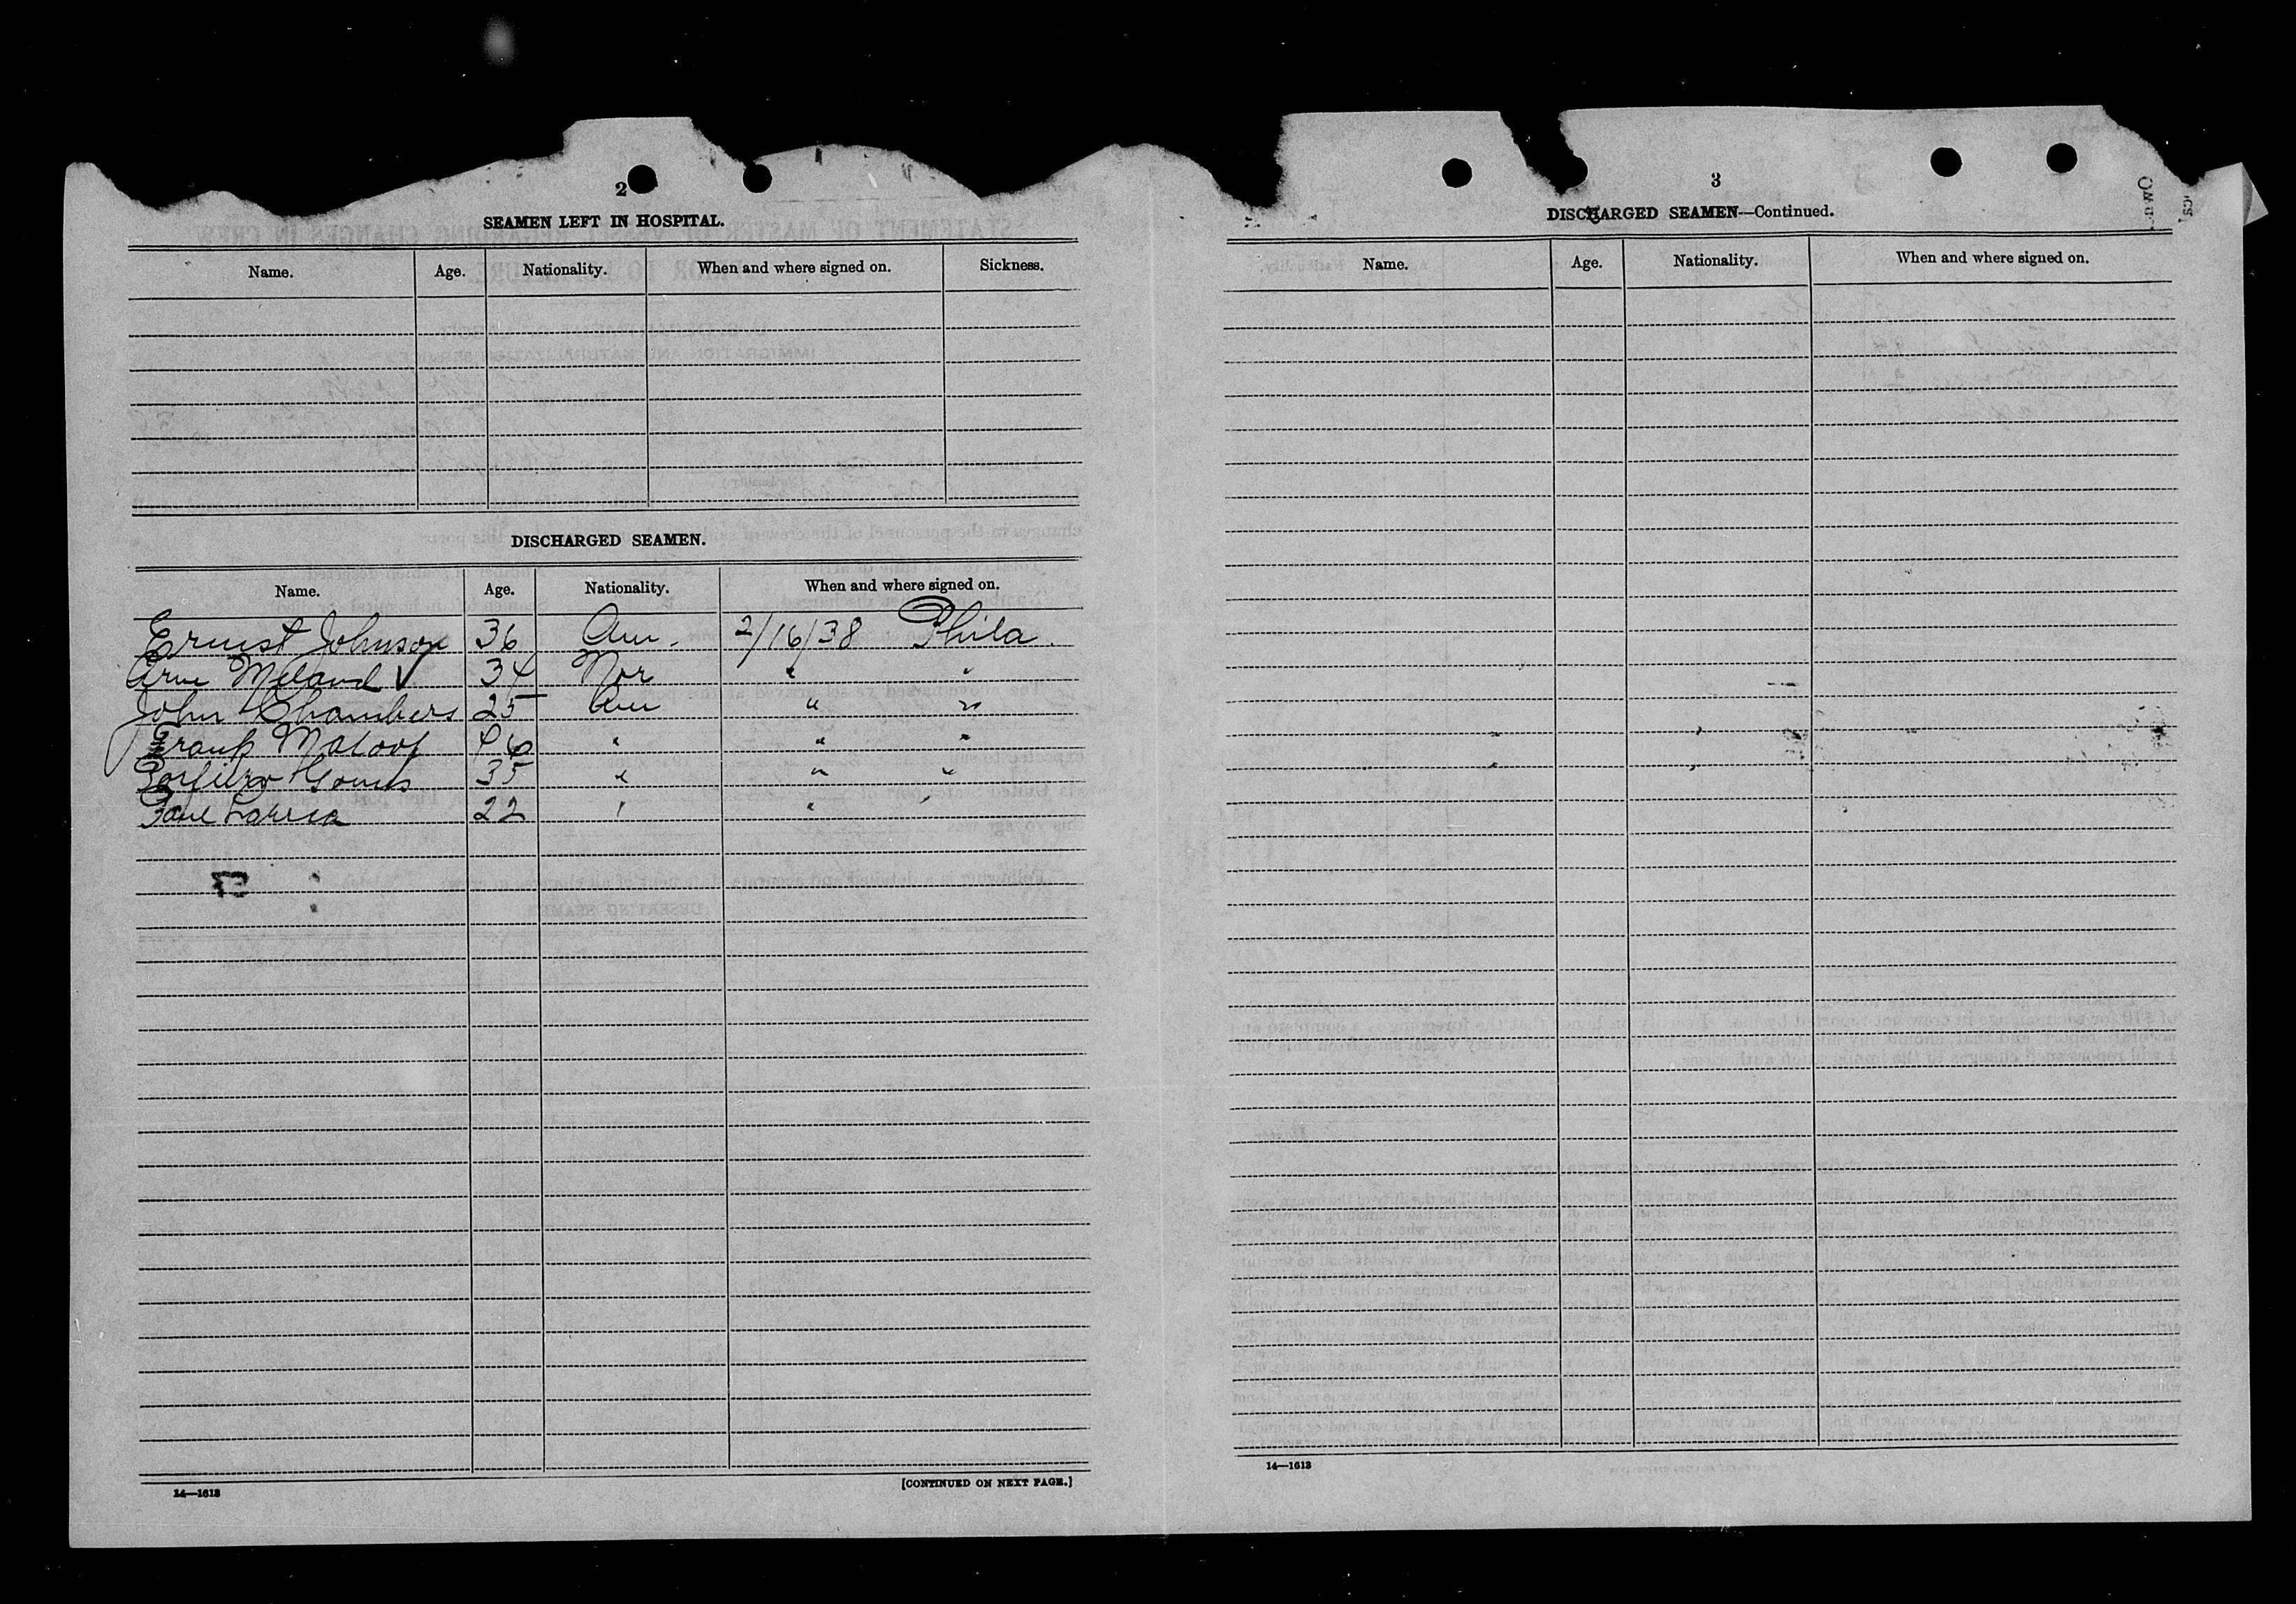 2
SEAMEN LEFT IN HOSPITAL.
Name. Age. Nationality. When and where signed on. Sickness.
DISCHARGED SEAMEN.
Name. Age. Nationality. When and where signed on.
Ernest Johnson 36 Am. 2/16/38 Phila.
Arne Meland ✓ 34 Nor " "
John Chambers 25 Am " "
Frank Maloof 46 " " "
Porfirio Gomes 35 " " "
22 " " "
14—1613
[CONTINUED ON NEXT PAGE.]
3
DISCHARGED SEAMEN—Continued.
Name. Age. Nationality. When and where signed on.
14—1613